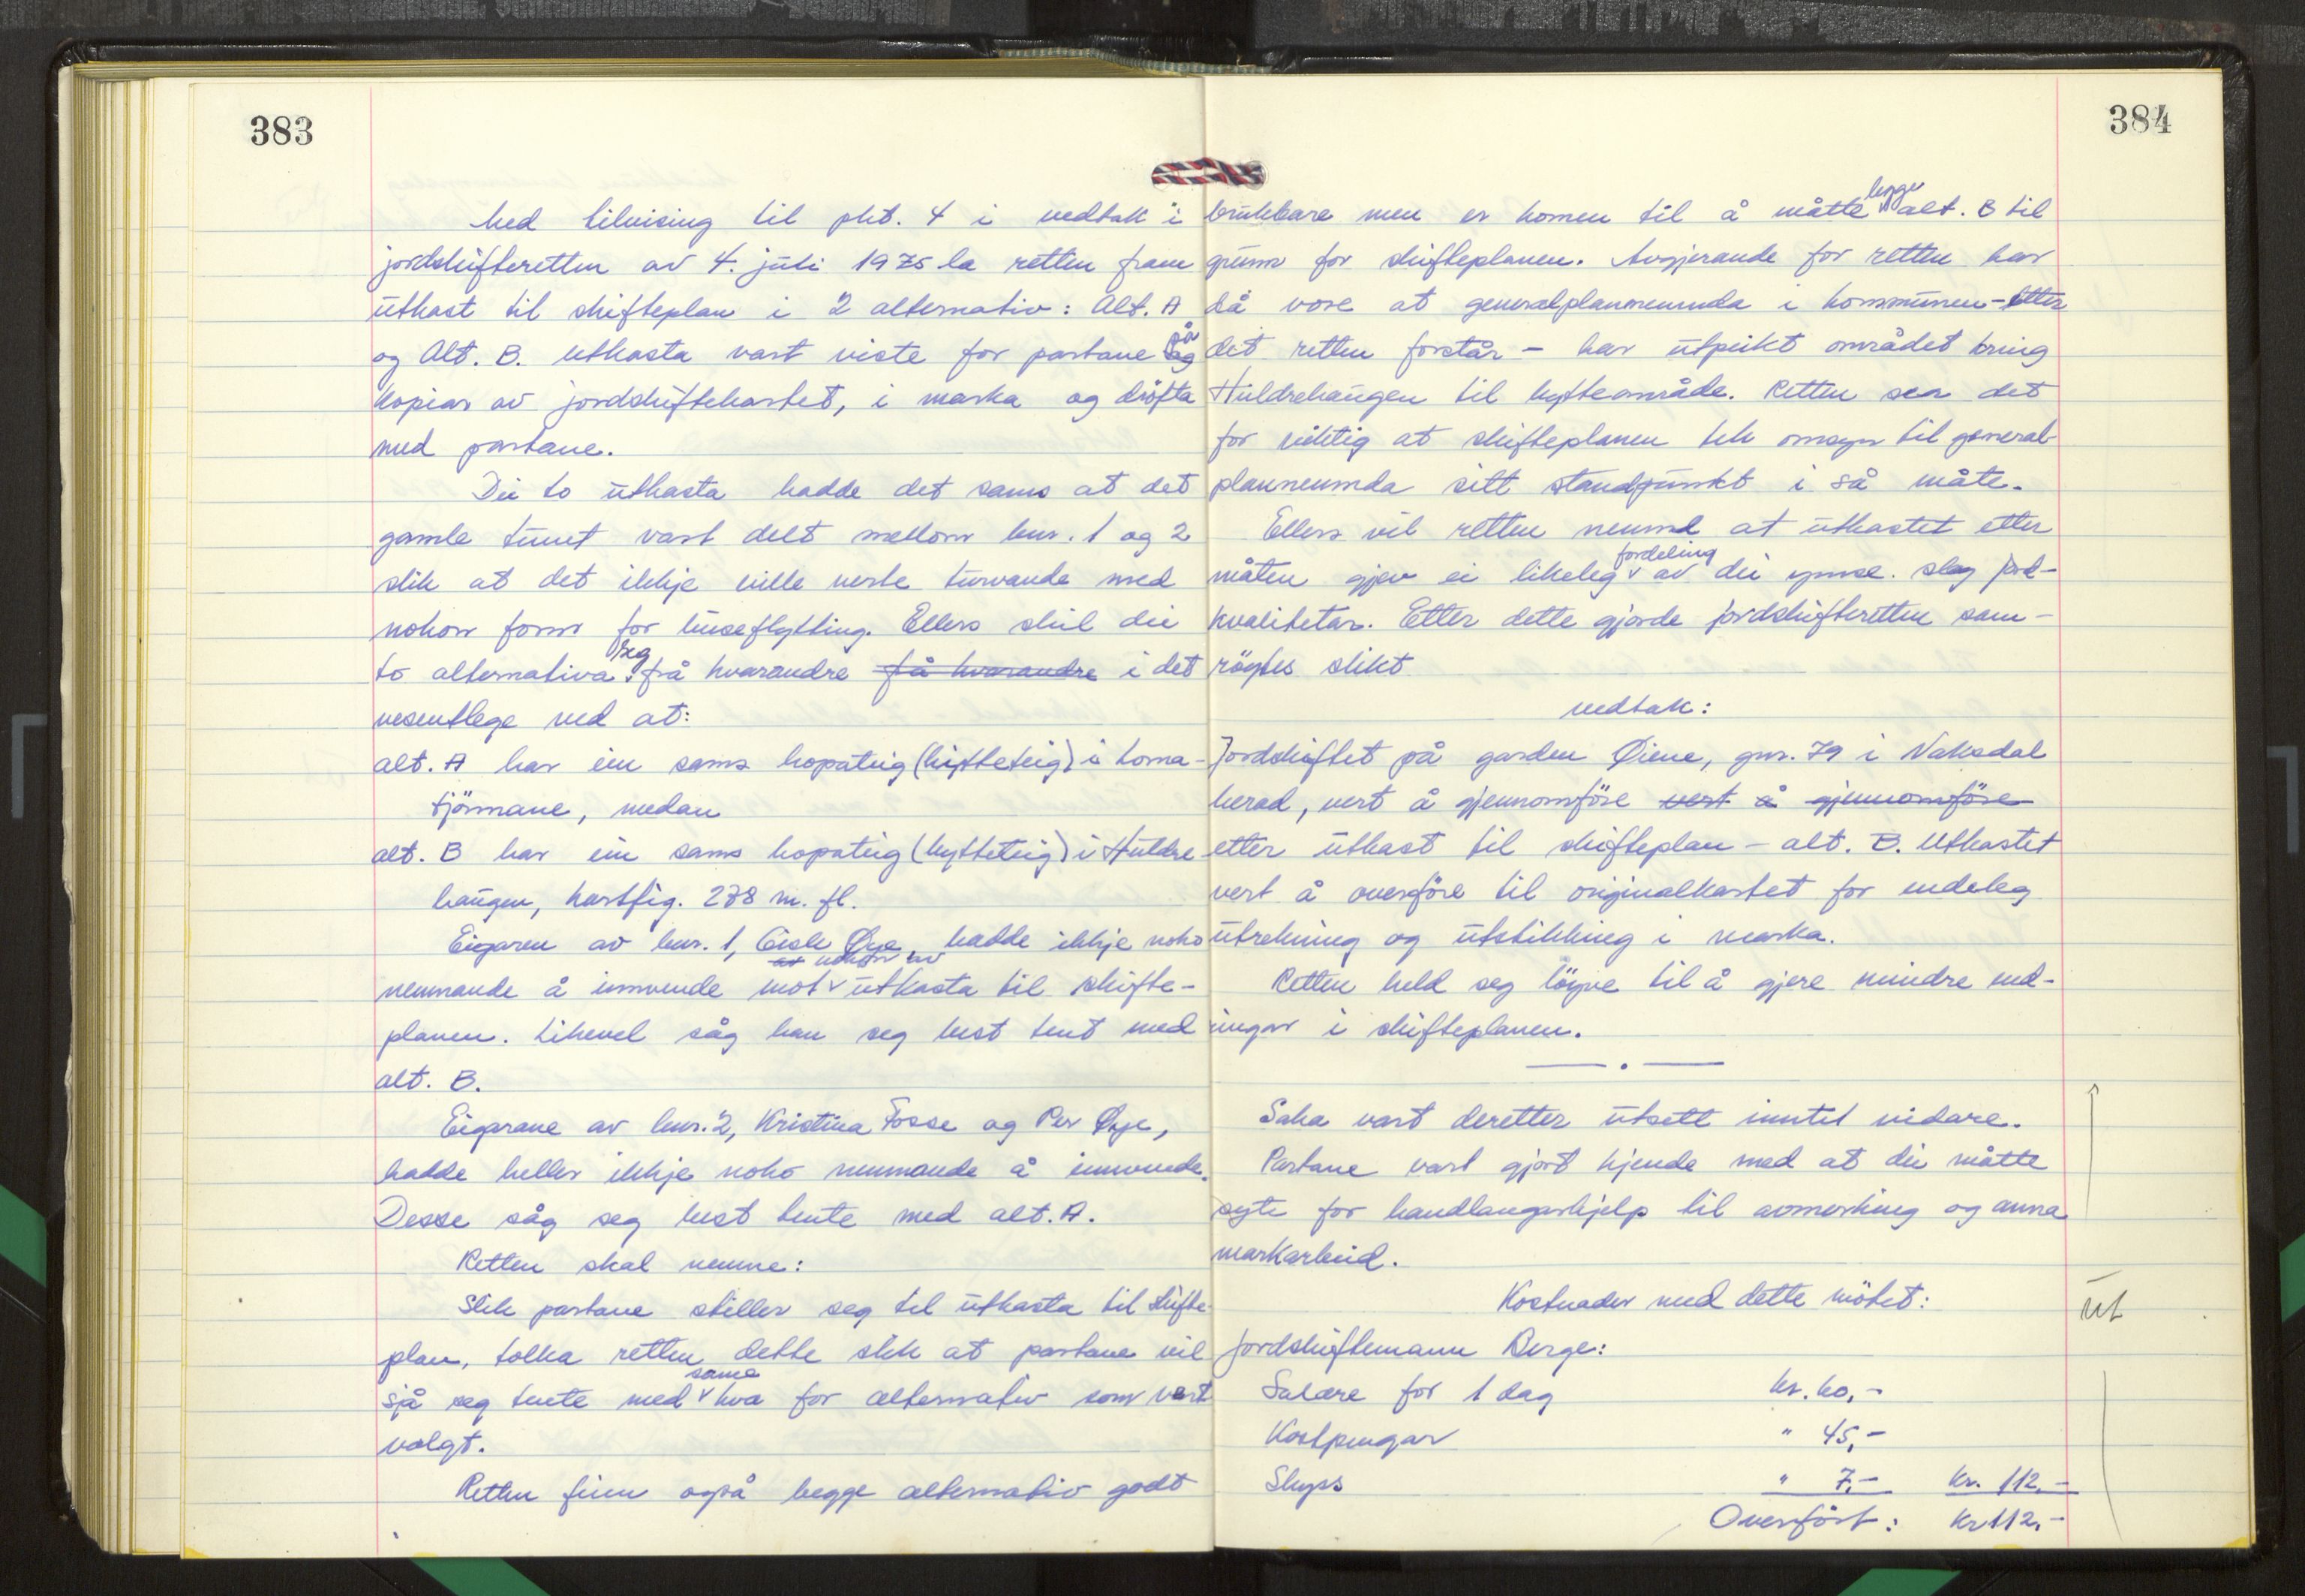 383
Med tilvising til pkt. 4 i vedtak i
jordskifteretten av 4. juli 1975 la retten fram
utkast til skifteplan i 2 alternativ: Alt. A
og Alt. B. Utkasta vart viste for partane på
kopiar av jordskiftekartet, i marka og dröfta
med partane.
Dei to utkasta hadde det sams at det
gamle tunet vart delt mellom bnr. 1 og 2
slik at det ikkje ville verte turvande med
nokon form for huseflytting. Ellers skil dei
to alternativa seg frå kvarandre frå kvarandre i det
vesentlege ved at:
alt. A har ein sams hopateig (hytteteig) i Torna-
tjörnane, medan
alt. B har ein sams hopateig (hytteteig) i Huldre-
haugen, kartfig. 278 m. fl.
Eigaren av bnr. 1, Gisle Øye, hadde ikkje noko
nemnande å innvende mot nokon av utkasta til skifte-
planen. Likevel såg han seg best tent med
alt. B.
Eigarane av bnr. 2, Kristina Fosse og Per Øye,
hadde heller ikkje noko nemnande å innvende.
Desse såg seg best tente med alt. A.
Retten skal nemne:
Slik partane stiller seg til utkasta til skifte-
plan, tolka retten dette slik at partane vil
sjå seg tente med same kva for alternativ som vert
valgt.
Retten finn også begge alternativ godt
384
brukbare men er komen til å måtte legge alt. B til
grunn for skifteplanen. Avgjerande for retten har
då vore at generalplannemnda i kommunen - etter
det retten forstår - har utpeikt området kring
Huldrehaugen til hytteområde. Retten ser det
for riktig at skifteplanen tek omsyn til general-
plannemnda sitt standpunkt i så måte.
Ellers vil retten nemne at utkastet etter
måten gjev ei likeleg fordeling av dei ymse slag jord-
kvalitetar. Etter dette gjorde jordskifteretten sam-
röystes slikt
vedtak:
Jordskiftet på garden Øiene, gnr. 79 i Vaksdal
herad, vert å gjennomföre vert å gjennomföre
etter utkast til skifteplan - alt. B. Utkastet
vert å overföre til originalkartet for endeleg
utrekning og utstikking i marka.
Retten held seg löyve til å gjere mindre end-
ingar i skifteplanen.
Saka vart deretter utsett inntil vidare.
Partane vart gjort kjende med at dei måtte
syte for handlangarhjelp til avmerking og anna
markarbeid.
Kostnader med dette mötet:
Ut
Jordskiftemann Berge:
Salære for 1 dag kr. 60,-
Kostpengar " 45,-
Skyss " 7,- kr. 112,-
Overfört: kr 112,-